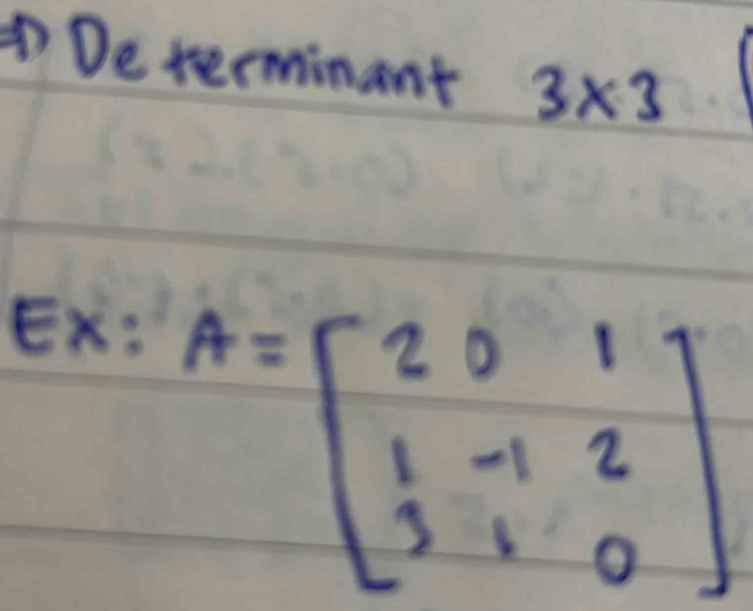 ⇒ Determinant 3x3
Ex: A = [ 2 0 1
1 -1 2
3 1 0 ]